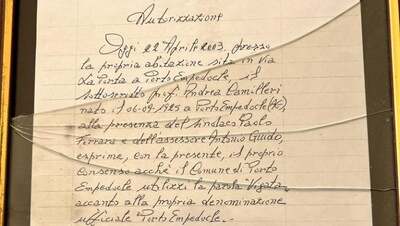 Autorizzazione
Oggi 22 Aprile 2003, presso
la propria abitazione sita in Via
La Porta a Porto Empedocle, il
sottoscritto prof. Andrea Camilleri
nato il 06-09-1925 a Porto Empedocle (AG)
alla presenza del Sindaco Paolo
Ferrara e dell'assessore Antonio Guido,
esprime, con la presente, il proprio
consenso acchè il Comune di Porto
Empedocle utilizzi la parola "Vigata"
accanto alla propria denominazione
ufficiale Porto Empedocle.